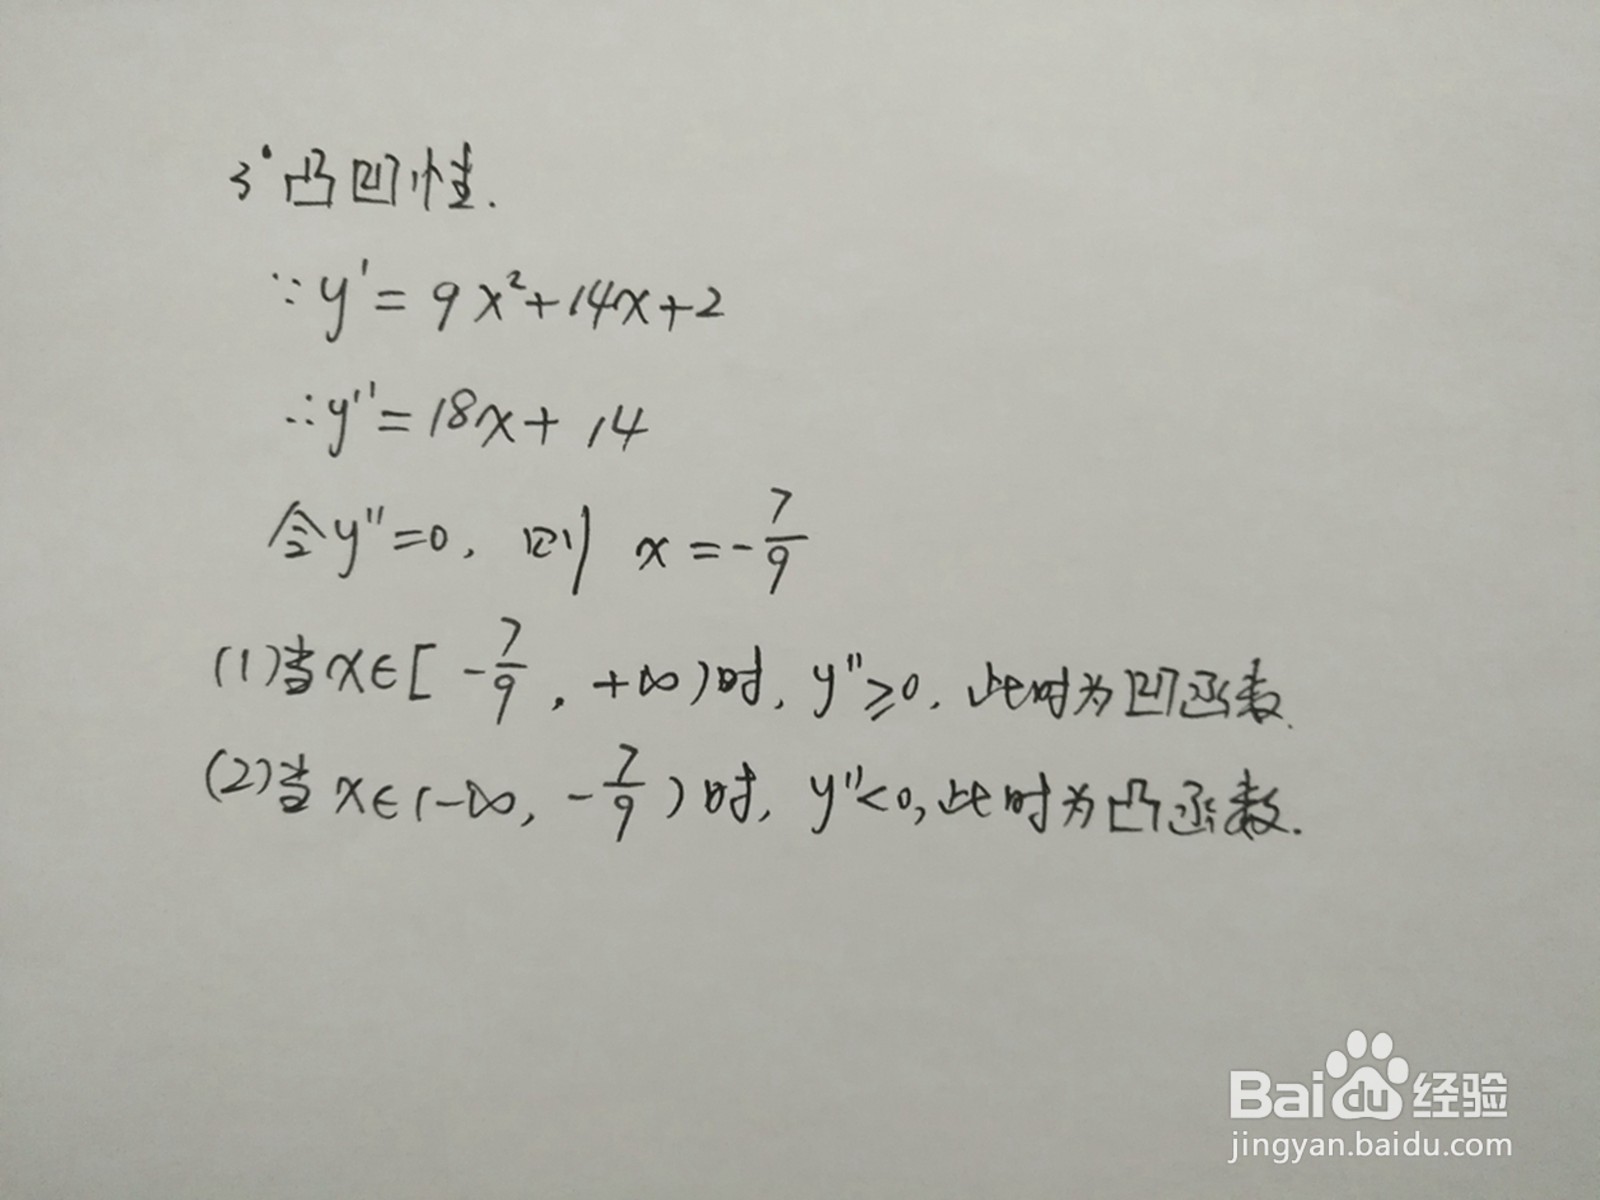 3° 凸凹性.
∵y'=9x²+14x+2
∴y''=18x+14
令y''=0, 则 x=-7/9
(1)当x∈[-7/9, +∞)时, y''≥0, 此时为凹函数.
(2)当x∈(-∞, -7/9)时, y''<0, 此时为凸函数.
Baidu经验
jingyan.baidu.com